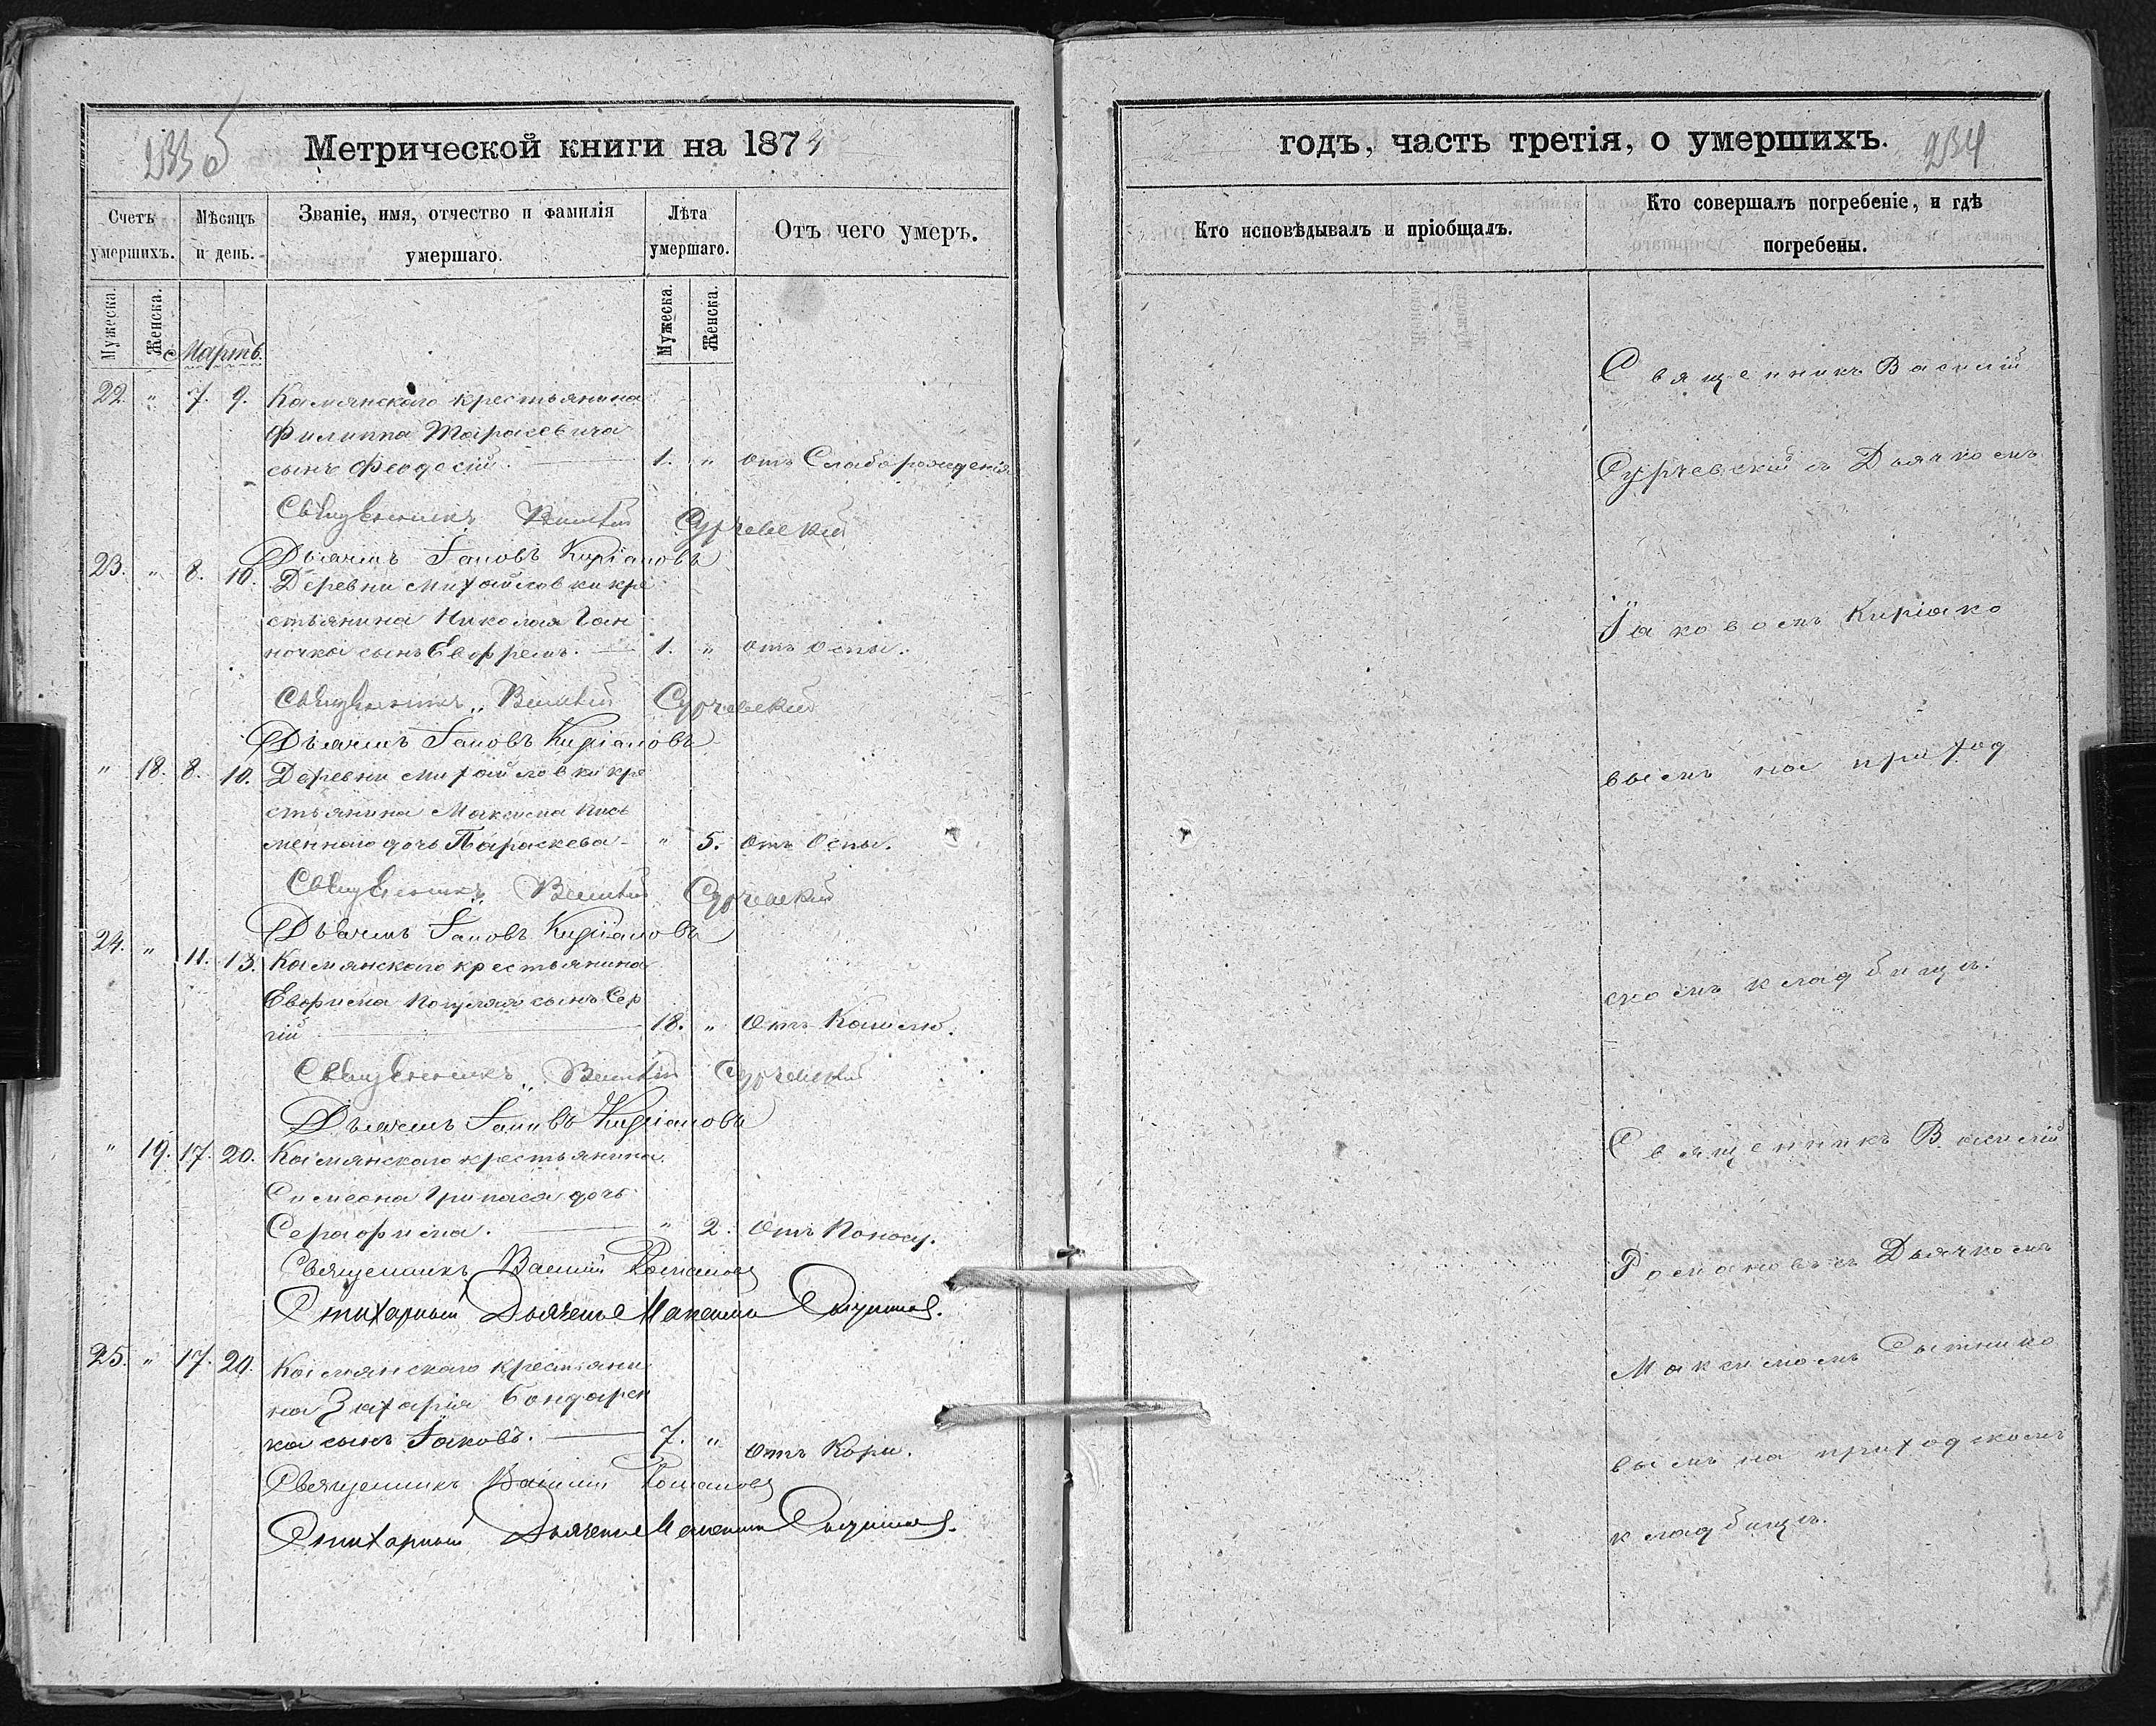 233 об
Метрической книги на 1874
Счетъ умершихъ.
Мѣсяцъ и день.
Званіе, имя, отчество и фамилія умершаго.
Лѣта умершаго.
Отъ чего умеръ.
Мужеска.
Женска.
Мужеска.
Женска.
Мартъ.
22. " 7. 9. Камянскаго крестьянина
Филиппа Тарасевича
сынъ Феодосій. 1. " отъ Слаборожденія
Священникъ Василій Сурчевскій
Дьячекъ Іаковъ Киріаковъ
23. " 8. 10. Деревни Михайловки кре
стьянина Николая Ган
ночка сынъ Евфремъ. 1. " отъ Оспы.
Священникъ Василій Сурчевскій
Дьячекъ Іаковъ Киріаковъ
" 18. 8. 10. Деревни Михайловки кре
стьянина Максима Пись
меннаго дочь Параскева " 5. отъ Оспы.
Священникъ Василій Сурчевскій
Дьячекъ Іаковъ Киріаковъ
24. " 11. 13. Камянскаго крестьянина
Евфима сынъ Сер
гій 18. " Отъ Кашлю.
Священникъ Василій Сурчевскій
Дьячекъ Іаковъ Киріаковъ
" 19. 17. 20. Камянскаго крестьянина
Симеона Грипаса дочь
Серафима. " 2. Отъ Поносу.
Священникъ Василій Романовъ
Стихарный Дьячекъ Максимъ Сытниковъ.
25. " 17. 20. Камянскаго крестьяни
на Захарія Бондарен
ка сынъ Іаковъ. 7. " отъ Кори.
Священникъ Василій Романовъ
Стихарный Дьячекъ Максимъ Сытниковъ.
годъ, часть третія, о умершихъ.
234
Кто исповѣдывалъ и пріобщалъ.
Кто совершалъ погребеніе, и гдѣ погребены.
Священникъ Василій
Сурчевскій съ Дьячкомъ
Іаковомъ Киріако
вымъ на приход
скомъ кладбищѣ.
Священникъ Василій
Романовъ съ Дьячкомъ
Максимомъ Сытнико
вымъ на приходскомъ
кладбищѣ.